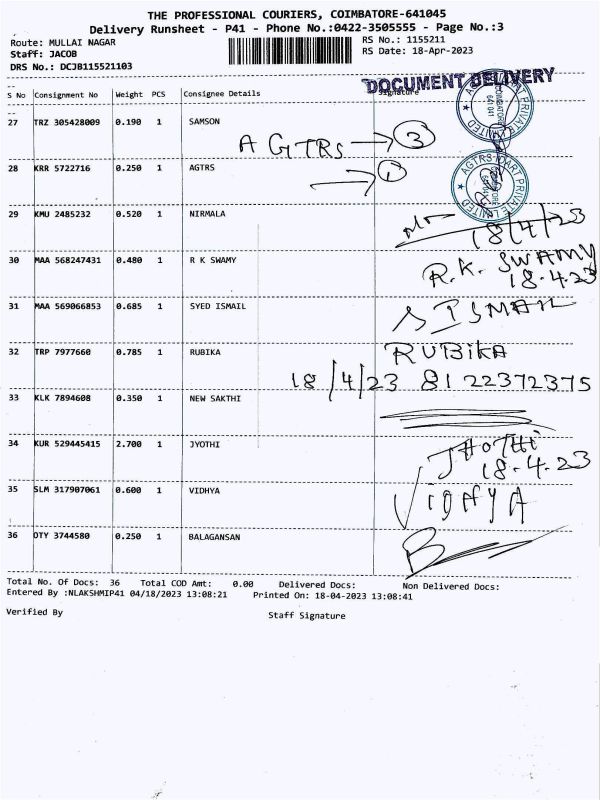 THE PROFESSIONAL COURIERS, COIMBATORE-641045
Delivery Runsheet - P41 - Phone No.:0422-3505555 - Page No.:3
Route: MULLAI NAGAR RS No.: 1155211
Staff: JACOB RS Date: 18-Apr-2023
DRS No.: DCJB115521103
DOCUMENT DELIVERY
S No Consignment No Weight PCS Consignee Details Signature
27 TRZ 305428009 0.190 1 SAMSON
AGTRS → 3
28 KRR 5722716 0.250 1 AGTRS
→ 1
29 KMU 2485232 0.520 1 NIRMALA
18/4/23
30 MAA 568247431 0.480 1 R K SWAMY R.K. SWAMY
18.4.23
31 MAA 569066853 0.685 1 SYED ISMAIL S ISMAIL
32 TRP 7977660 0.785 1 RUBIKA RUBIKA
18/4/23 8122372375
33 KLK 7894608 0.350 1 NEW SAKTHI
34 KUR 529445415 2.700 1 JYOTHI JHOTHI
18.4.23
35 SLM 317907061 0.600 1 VIDHYA
36 DTY 3744580 0.250 1 BALAGANSAN
Total No. Of Docs: 36 Total COD Amt: 0.00 Delivered Docs: Non Delivered Docs:
Entered By :NLAKSHMIP41 04/18/2023 13:08:21 Printed On: 18-04-2023 13:08:41
Verified By Staff Signature